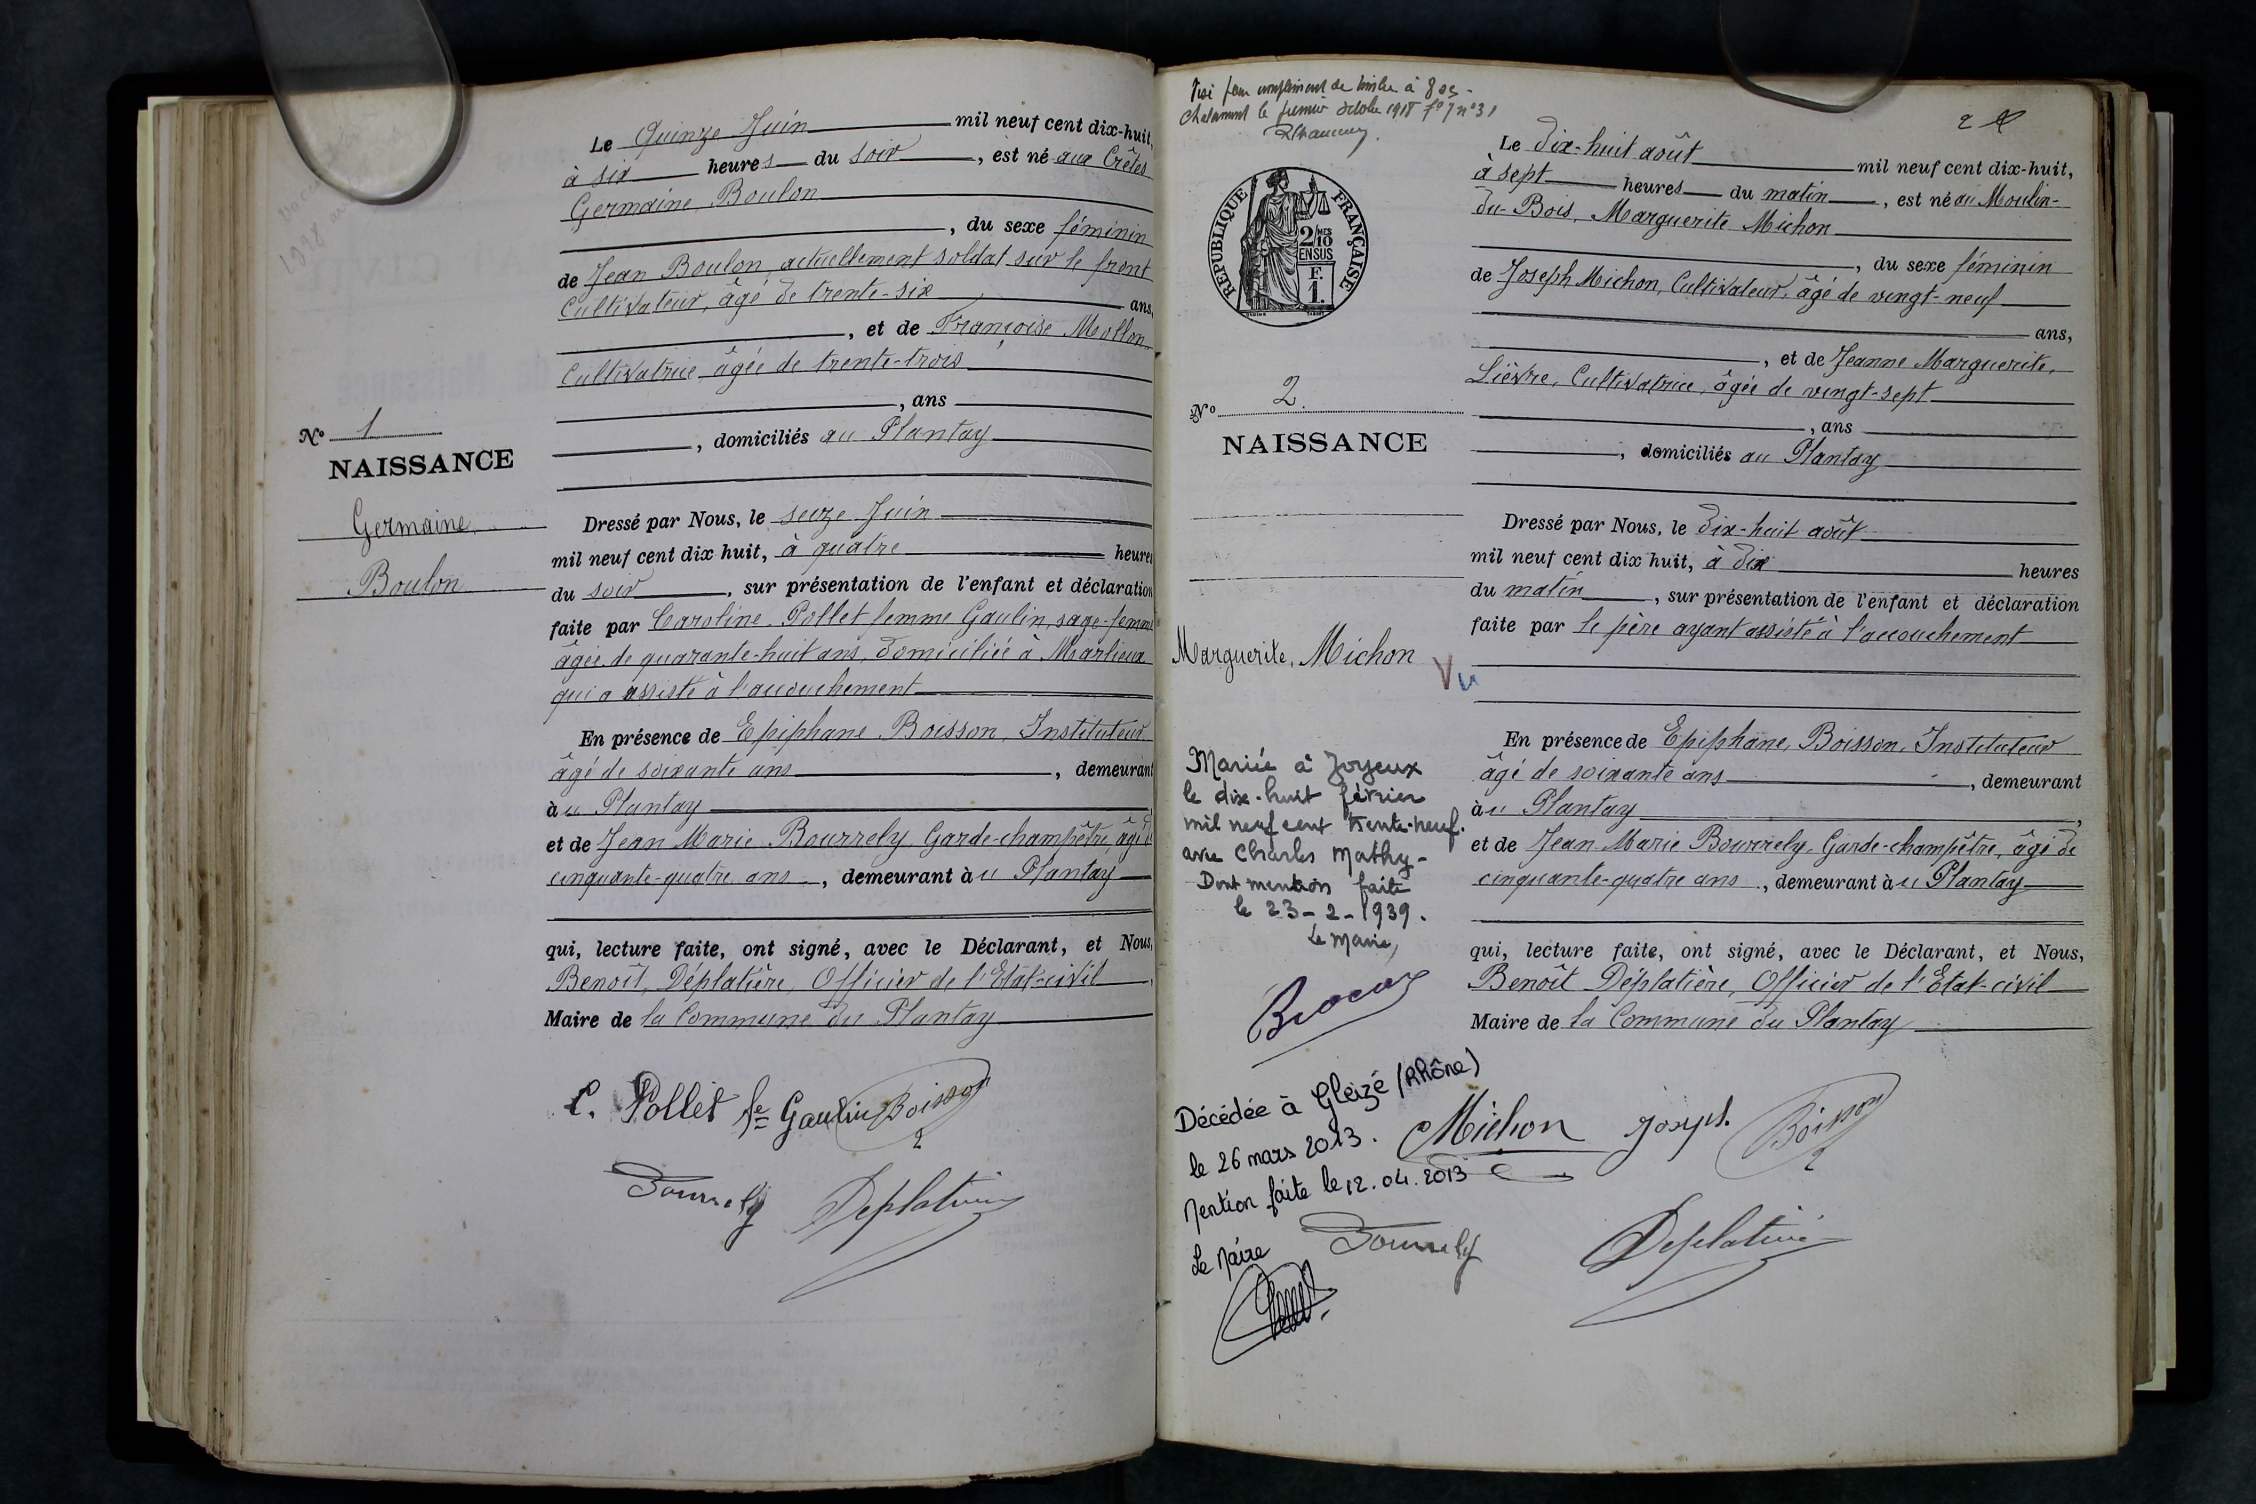 Le Quinze Juin mil neuf cent dix-huit,
à six heures du soir, est né aux Crêtes
Germaine Boulon
, du sexe féminin
de Jean Boulon, actuellement soldat sur le front
Cultivateur, âgé de trente-six ans,
, et de Françoise Mollon
Cultivatrice âgée de trente-trois
, ans
, domiciliés au Plantay
No 1
NAISSANCE
Germaine
Boulon
Dressé par Nous, le seize Juin
mil neuf cent dix huit, à quatre heures
du soir, sur présentation de l'enfant et déclaration
faite par Caroline Pollet femme Gaulin, sage-femme
âgée de quarante-huit ans, domiciliée à Marlieux
qui a assisté à l'accouchement
En présence de Epiphane Boisson, Instituteur
âgé de soixante ans, demeurant
àu Plantay
et de Jean Marie Bourrely Garde-champêtre, âgé de
cinquante-quatre ans, demeurant àu Plantay
qui, lecture faite, ont signé, avec le Déclarant, et Nous,
Benoît Déplatière, Officier de l'Etat-civil
Maire de la Commune du Plantay
C. Pollet fe Gaulin Boisson
Bourrely Deplatière
Visé pour complément de timbre à
Chalamont le premier octobre 1918 fo 7 no 31
2
REPUBLIQUE FRANÇAISE
2/10 MES
EN SUS
F.
1.
Le dix-huit août mil neuf cent dix-huit,
à sept heures du matin, est né au Moulin-
du-Bois, Marguerite Michon
, du sexe féminin
de Joseph Michon, Cultivateur, âgé de vingt-neuf
ans,
, et de Jeanne Marguerite
Lièvre, Cultivatrice, âgée de vingt-sept
, ans
, domiciliés au Plantay
No 2.
NAISSANCE
Marguerite, Michon
Vu
Dressé par Nous, le dix-huit août
mil neuf cent dix huit, à dix heures
du matin, sur présentation de l'enfant et déclaration
faite par le père ayant assisté à l'accouchement
En présence de Epiphane, Boisson, Instituteur
âgé de soixante ans, demeurant
àu Plantay,
et de Jean Marie Bourrely, Garde-champêtre, âgé de
cinquante-quatre ans, demeurant àu Plantay
qui, lecture faite, ont signé, avec le Déclarant, et Nous,
Benoît Déplatière, Officier de l'Etat-civil
Maire de la Commune du Plantay
Mariée à Joyeux
le dix-huit février
mil neuf cent trente-neuf.
avec Charles Mathy-
Dont mention faite
le 23-2-1939.
Le Maire,
Décédée à Gleizé (Rhône)
le 26 mars 2013.
Mention faite le 12.04.2013
Le Maire
Michon Joseph Boisson
Bourrely Deplatière